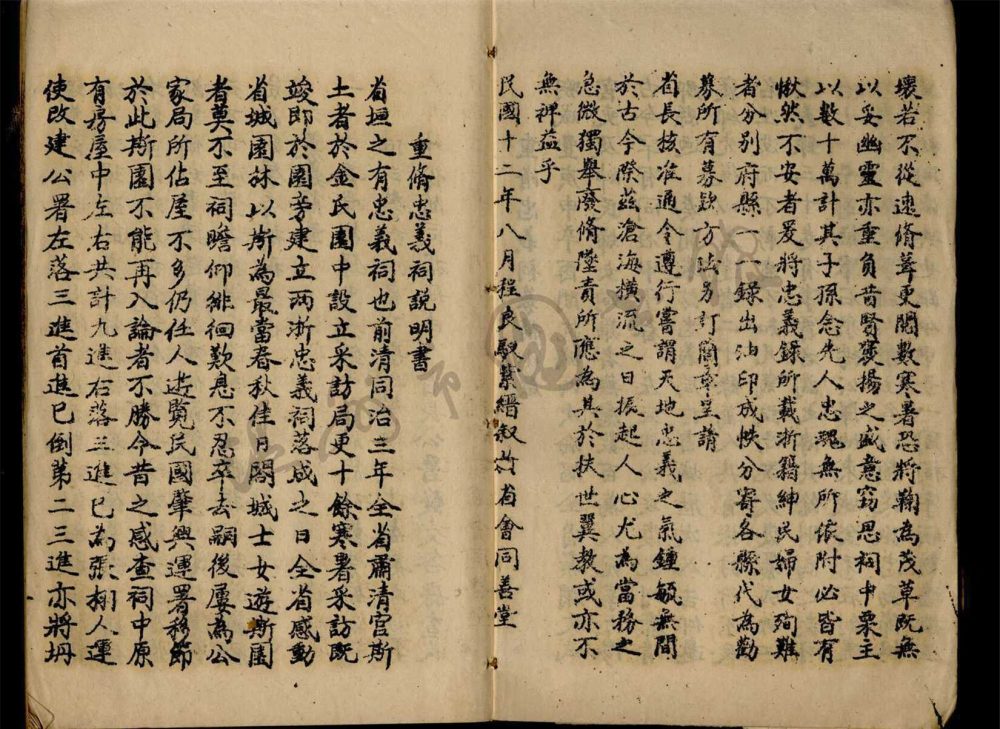 壞若不從速脩葺更閱數寒暑恐將鞠為茂草既無
以妥幽靈亦重負昔賢襃揚之盛意竊思祠中栗主
以數十萬計其子孫念先人忠魂無所依附必皆有
愀然不安者爰將忠義錄所載浙籍紳民婦女殉難
者分別府縣一一錄出油印成帙分寄各縣代為勸
募所有募欵方法另訂簡章呈請
省長核准通令遵行嘗謂天地忠義之氣鍾毓無間
於古今際茲滄海橫流之日振起人心尤為當務之
急微獨舉廢脩墜責所應為其於扶世翼教或亦不
無裨益乎
民國十二年八月程良馭縈縉叙於省會同善堂
重脩忠義祠説明書
省垣之有忠義祠也前清同治三年全省肅清官斯
土者於金氏園中設立采訪局更十餘寒暑采訪既
竣即於園旁建立兩浙忠義祠落成之日全省感動
省城園林以斯為最當春秋佳日闔城士女遊斯園
者莫不至祠瞻仰徘徊歎息不忍卒去嗣後屢為公
家局所佔屋不多仍任人遊覽民國肇興運署移節
於此斯園不能再入論者不勝今昔之感查祠中原
有房屋中左右共計九進右落三進已為張栩人運
使改建公署左落三進首進已倒第二三進亦將坍